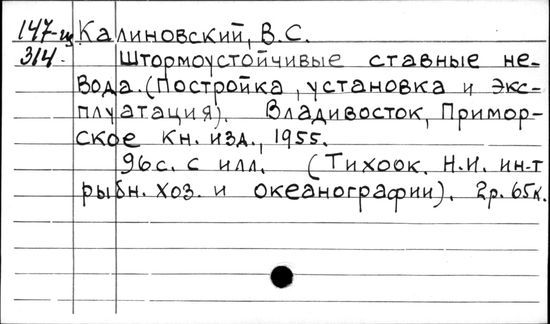 147-из Калиновский, В.С.
314. Штормоустойчивые ставные не-
вода. (Постройка, установка и экс-
плуатация). Владивосток, Примор-
ское кн. изд., 1955.
96с. с илл. (Тихоок. Н.И. ин-т
рыбн. хоз. и океанографии). 2р. 65к.